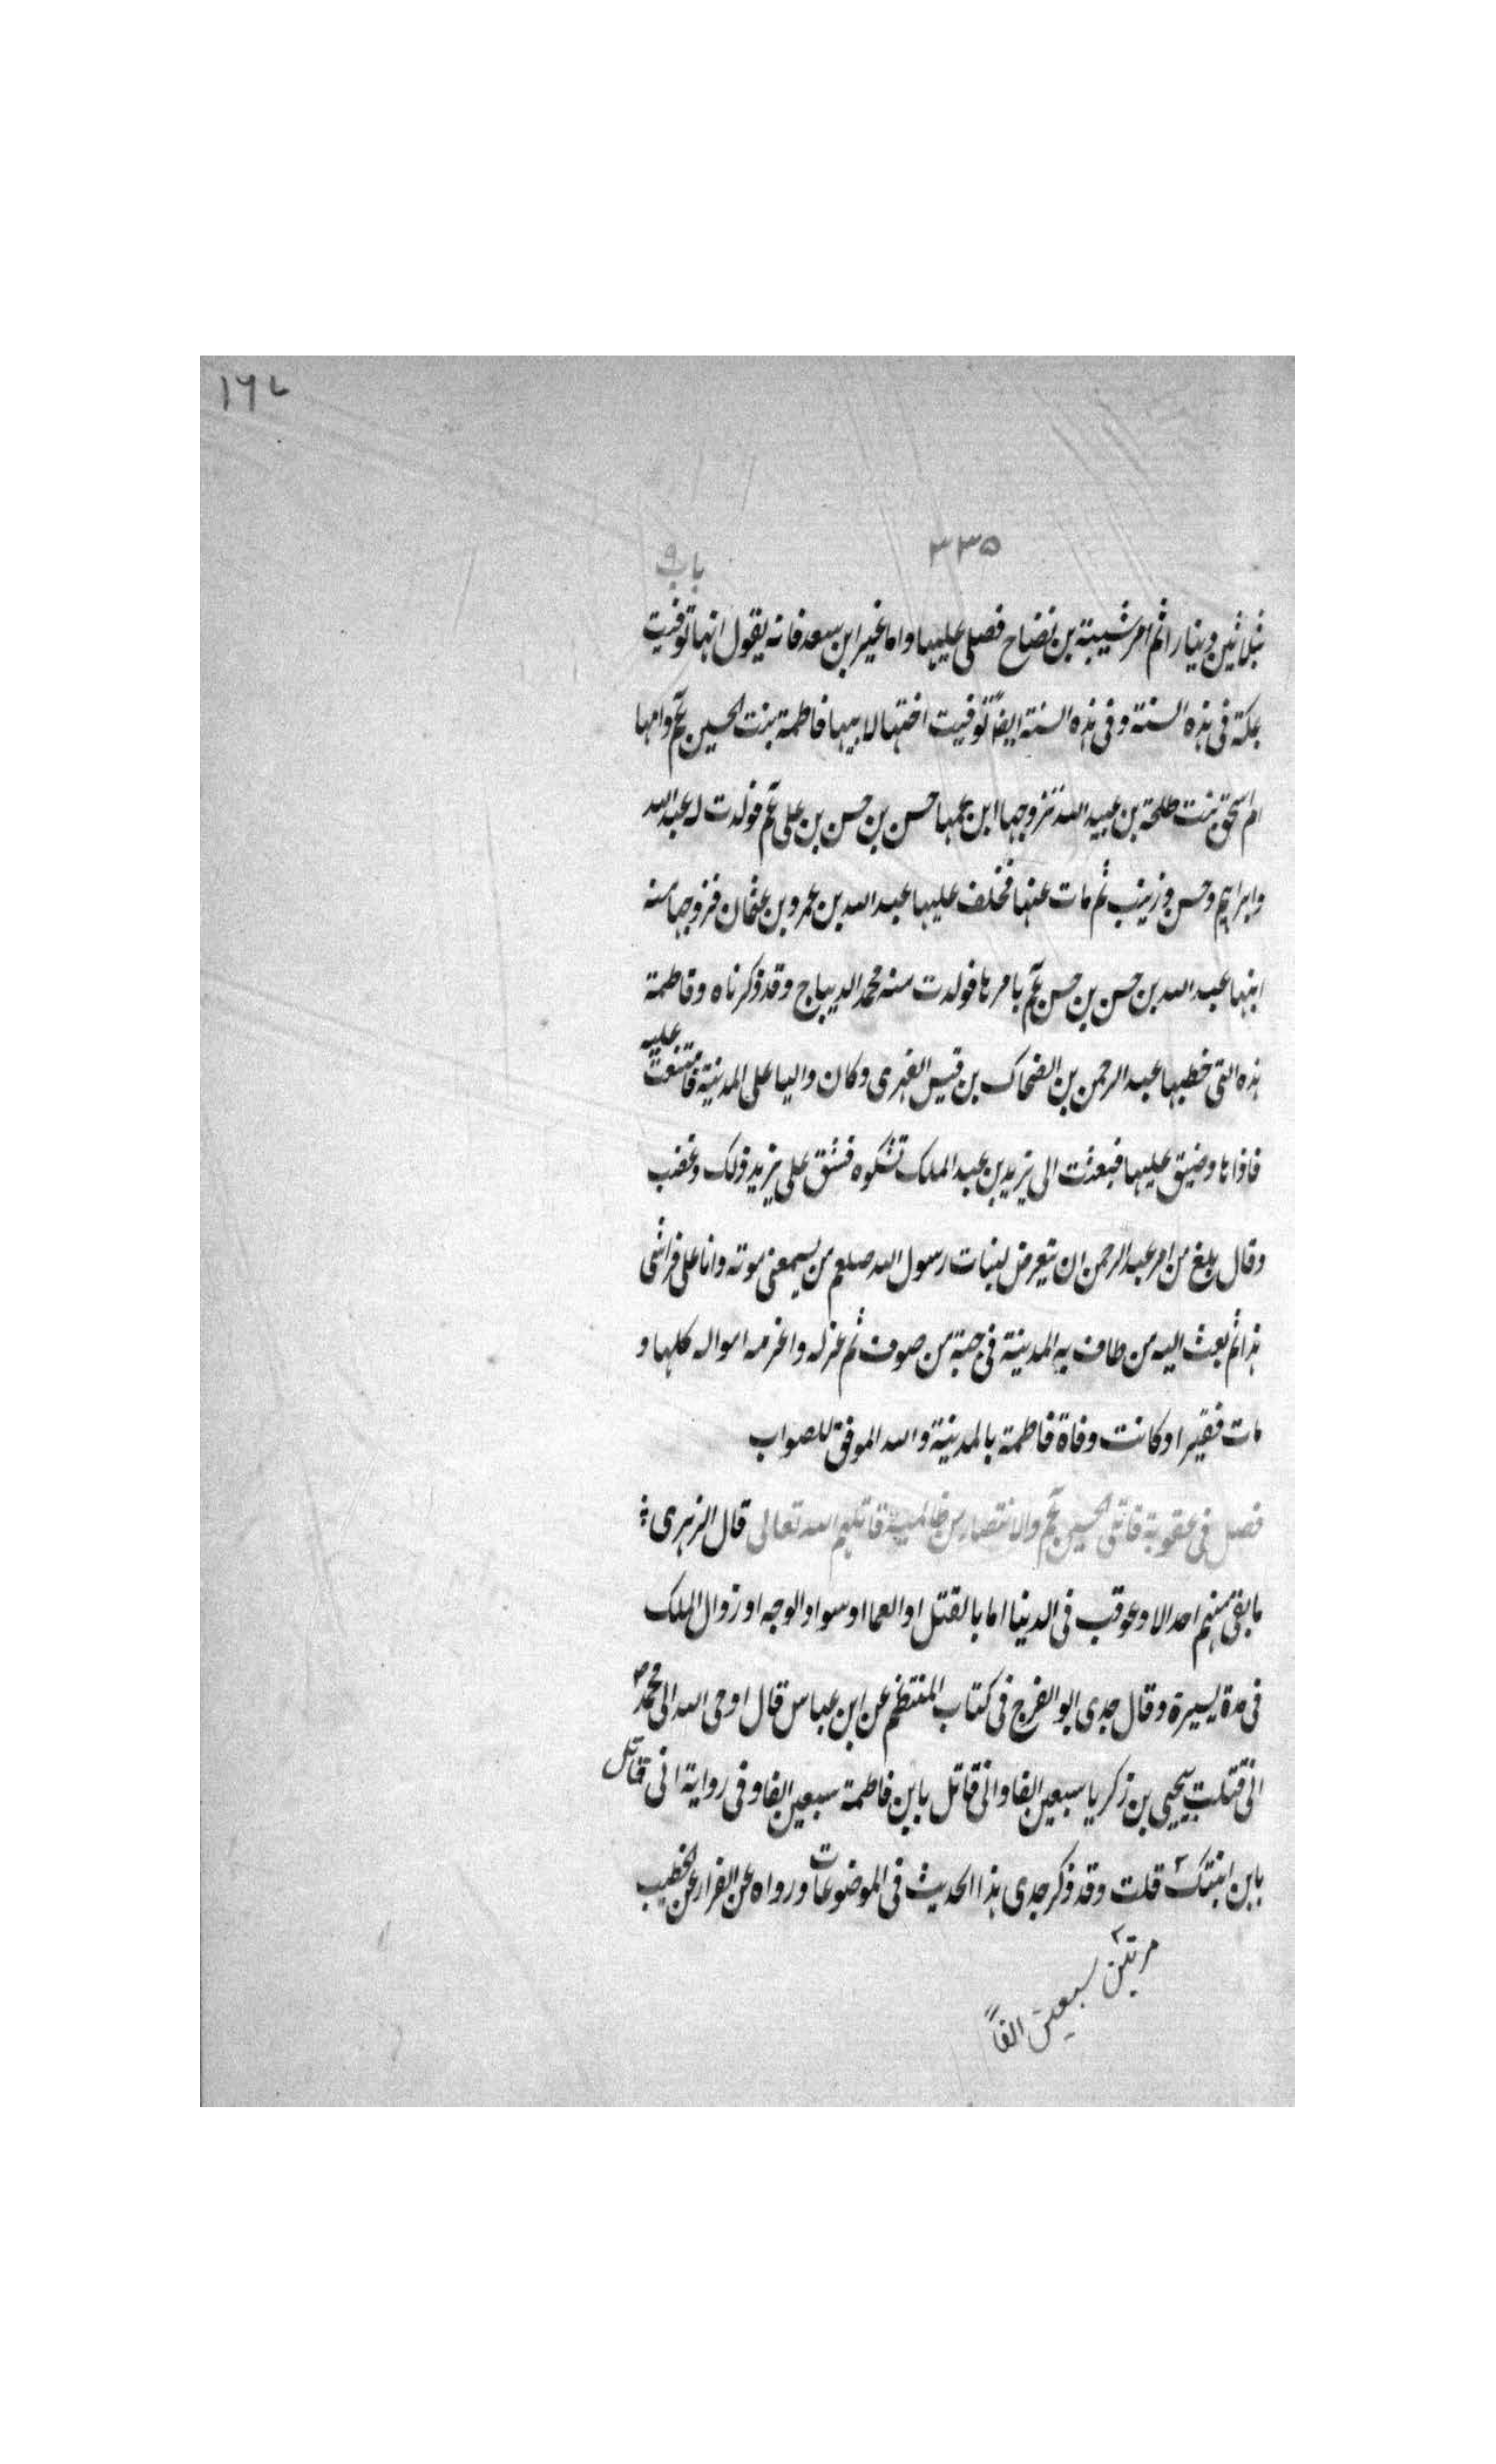 ١٦٧
٣٣٥
باب ٩
بثلاثين دينارا ثم امر شيبة بن نضاح فصلى عليها واما غير ابن سعد فانه يقول انها توفيت
بمكة فى هذه السنة وفى هذه السنة ايضاً توفيت اختها لابيها فاطمة بنت الحسين عم وامها
ام اسحق بنت طلحة بن عبيد الله تزوجها ابن عمها حسن بن حسن بن على عم فولدت له عبد الله
وابراهيم وحسن وزينب ثم مات عنها فخلف عليها عبد الله بن عمرو بن عثمان فزوجها منه
ابنها عبد الله بن حسن بن حسن عم بامرها فولدت منه محمد الديباج وقد ذكرناه وفاطمة
هذه التى خطبها عبد الرحمن بن الضحاك بن قيس الفهرى وكان واليا على المدينة فامتنعت عليه
فاذاها وضيق عليها فبعثت الى يزيد بن عبد الملك تشكوه فشق على يزيد ذلك وغضب
وقال بلغ من امر عبد الرحمن ان يتعرض لبنات رسول الله صلعم من يسمعنى موته وانا على فراشى
هذا ثم بعث اليه من طاف به المدينة فى جبة من صوف ثم عزله واغرمه امواله كلها و
مات فقيرا وكانت وفاة فاطمة بالمدينة والله الموفق للصواب
فصل فى عقوبة قاتلى الحسين عم والانتصار من ظالميه قاتلهم الله تعالى قال الزهرى
ما بقى منهم احد الا وعوقب فى الدنيا اما بالقتل او العما او سواد الوجه او زوال الملك
فى مدة يسيرة وقال جدى ابو الفرج فى كتاب المنتظم عن ابن عباس قال اوحى الله الى محمد ص
انى قتلت بيحيى بن زكريا سبعين الفا وانى قاتل بابن فاطمة سبعين الفا وفى رواية انى قاتل
بابن ابنتك ٢ قلت وقد ذكر جدى هذا الحديث فى الموضوعات ورواه عن القزاز عن الخطيب
٢ مرتين سبعين الفاً